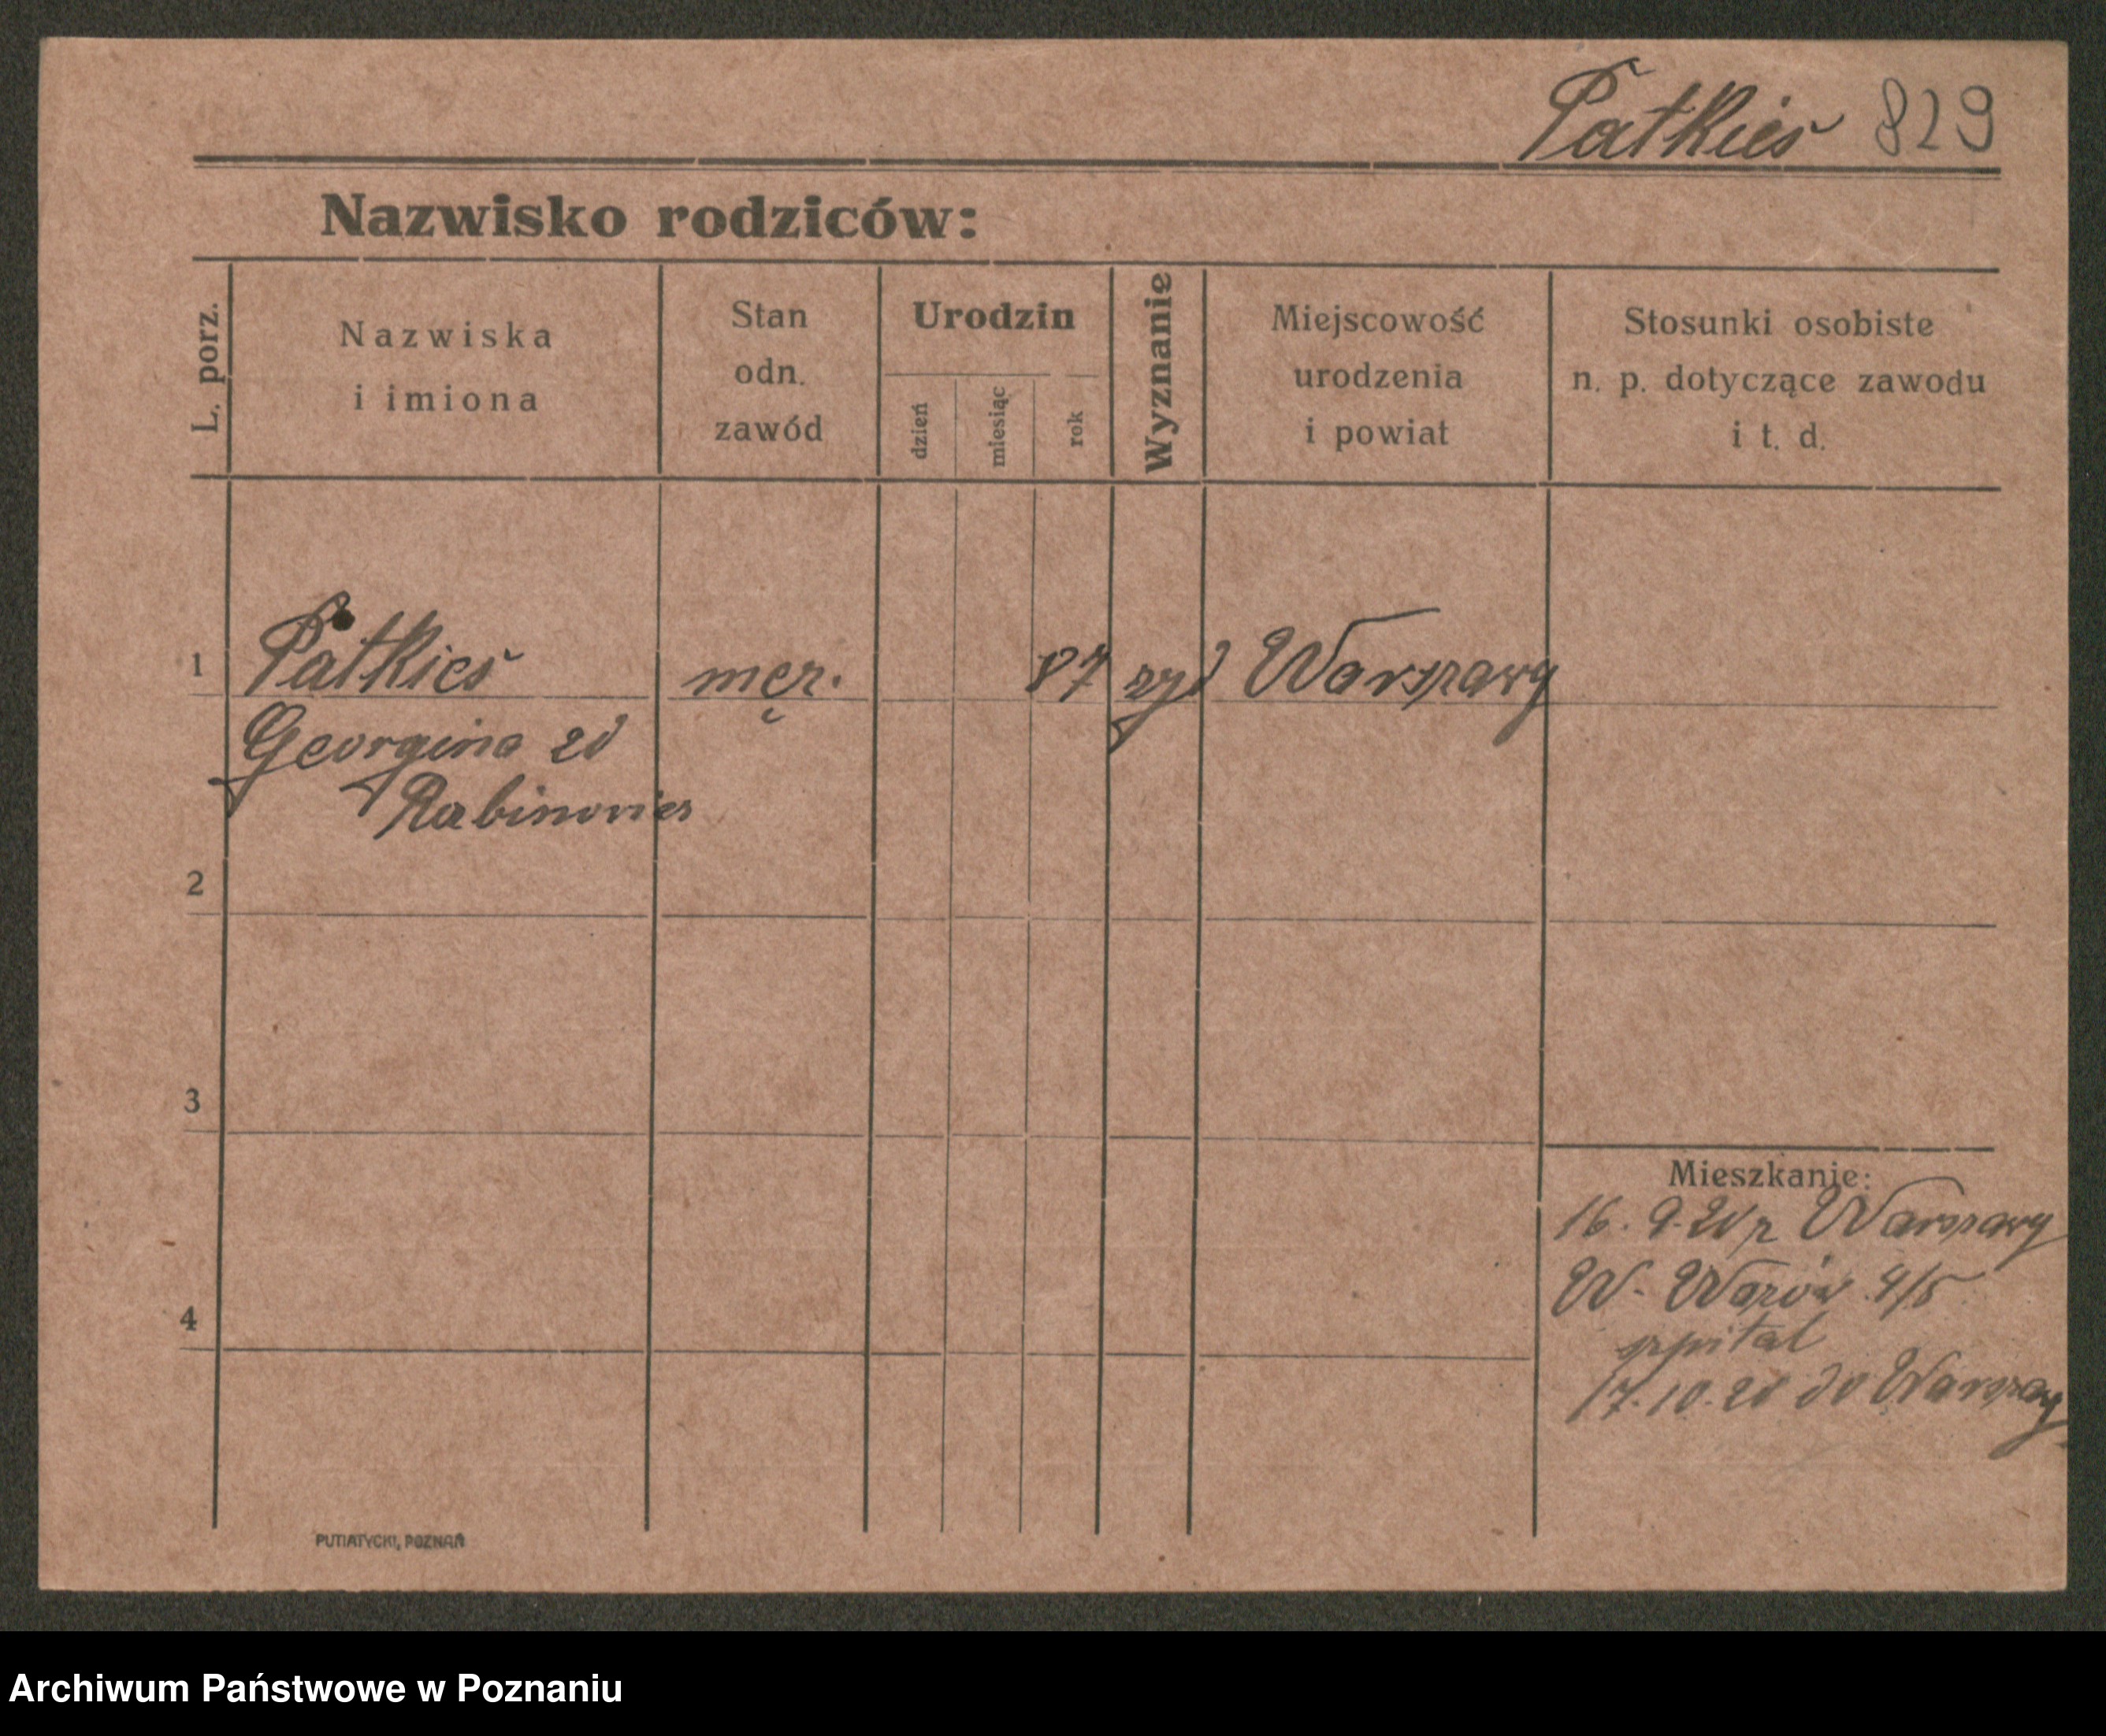 Patkies 829
Nazwisko rodziców:
L. porz.
Nazwiska
i imiona
Stan
odn.
zawód
Urodzin
dzień
miesiąc
rok
Wyznanie
Miejscowość
urodzenia
i powiat
Stosunki osobiste
n. p. dotyczące zawodu
i t. d.
1 Patkies męż. 87 żyd Warszawy
Georgina zd
Rabinowicz
2
3
4
Mieszkanie:
16. 9. 20 z Warszawy
W. 4/5
szpital
17. 10. 20 do Warszawy
PUTIATYCKI, POZNAŃ
Archiwum Państwowe w Poznaniu